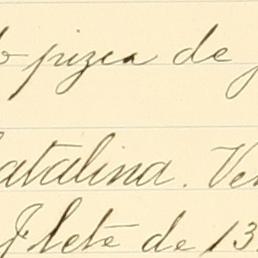 pizca de
Catalina. Ve
Flete de 13